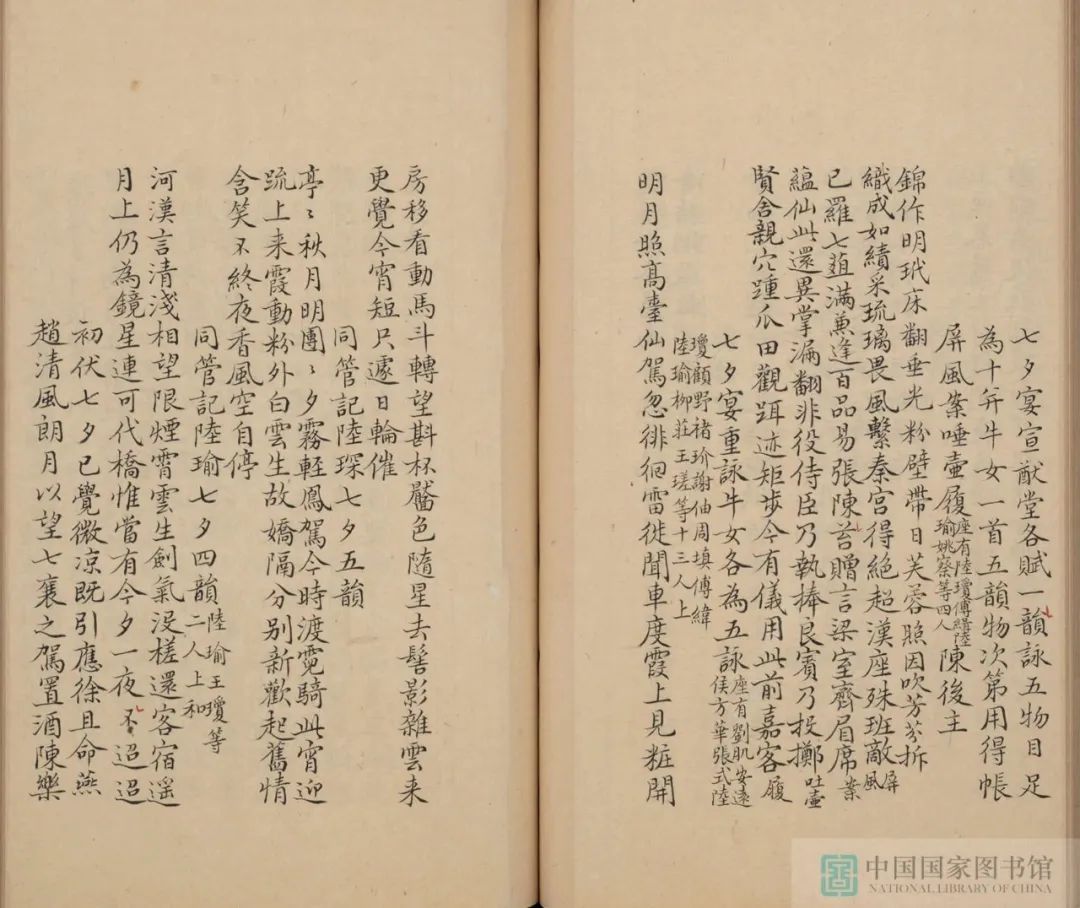 七夕宴宣猷堂各賦一韻詠五物目足
為十并牛女一首五韻物次第用得帳
屏風案唾壺履座有陸瓊傅縡陸瑜姚察等四人陳後主
錦作明玳床翻垂光粉壁帶日芙蓉照因吹芳芬拆
織成如績采琉璃畏風繫秦宮得絕超漢座殊班敵屏風
已羅七葅滿兼逢百品易張陳苔贈言梁室齊眉席案
蘊仙此還異掌漏翻非役侍臣乃執捧良賓乃投擲吐壺
賢舍親穴踵瓜田觀跙迹矩步今有儀用此前嘉客履
七夕宴重詠牛女各為五詠座有劉肌安遠侯方華張式陸
瓊顧野褚玠謝伷周墳傅緯陸瑜柳莊王瑳等十三人上
明月照高臺仙駕忽徘徊雷徙聞車度霞上見粧開
房移看動馬斗轉望斟杯靨色隨星去髻影雜雲来
更覺今宵短只遽日輪催
同管記陸琛七夕五韻
亭〻秋月明團〻夕霧輕鳳駕今時渡霓騎此宵迎
䟽上来霞動粉外白雲生故嬌隔分别新歡起舊情
含笑不終夜香風空自停
同管記陸瑜七夕四韻陸瑜王瓊等二人上和
河漢言清淺相望限煙霄雲生劍氣浸槎還客宿遥
月上仍為鏡星連可代橋惟當有今夕一夜丕迢迢
初伏七夕已覺微凉既引應徐且命燕
趙清風朗月以望七襄之駕置酒陳樂
中国国家图书馆
NATIONAL LIBRARY OF CHINA